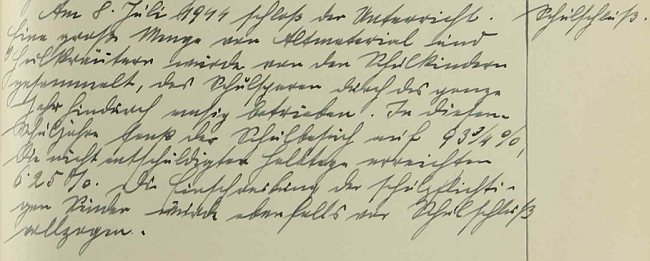 Am 8. Juli 1944 schloß der Unterricht. Schulschluß.
Eine große Menge von Altmaterial und
Heilkräutern wurde von den Schulkindern
gesammelt, das Schulsparen durch das ganze
Jahr hindurch eifrig betrieben. In diesem
Schuljahre sank der Schulbesuch auf 93 3/4 %,
die nicht entschuldigten Halbtage erreichten
6.25 %. Die Einschreibung der schulpflichti-
gen Kinder wurde ebenfalls vor Schulschluß
vollzogen.